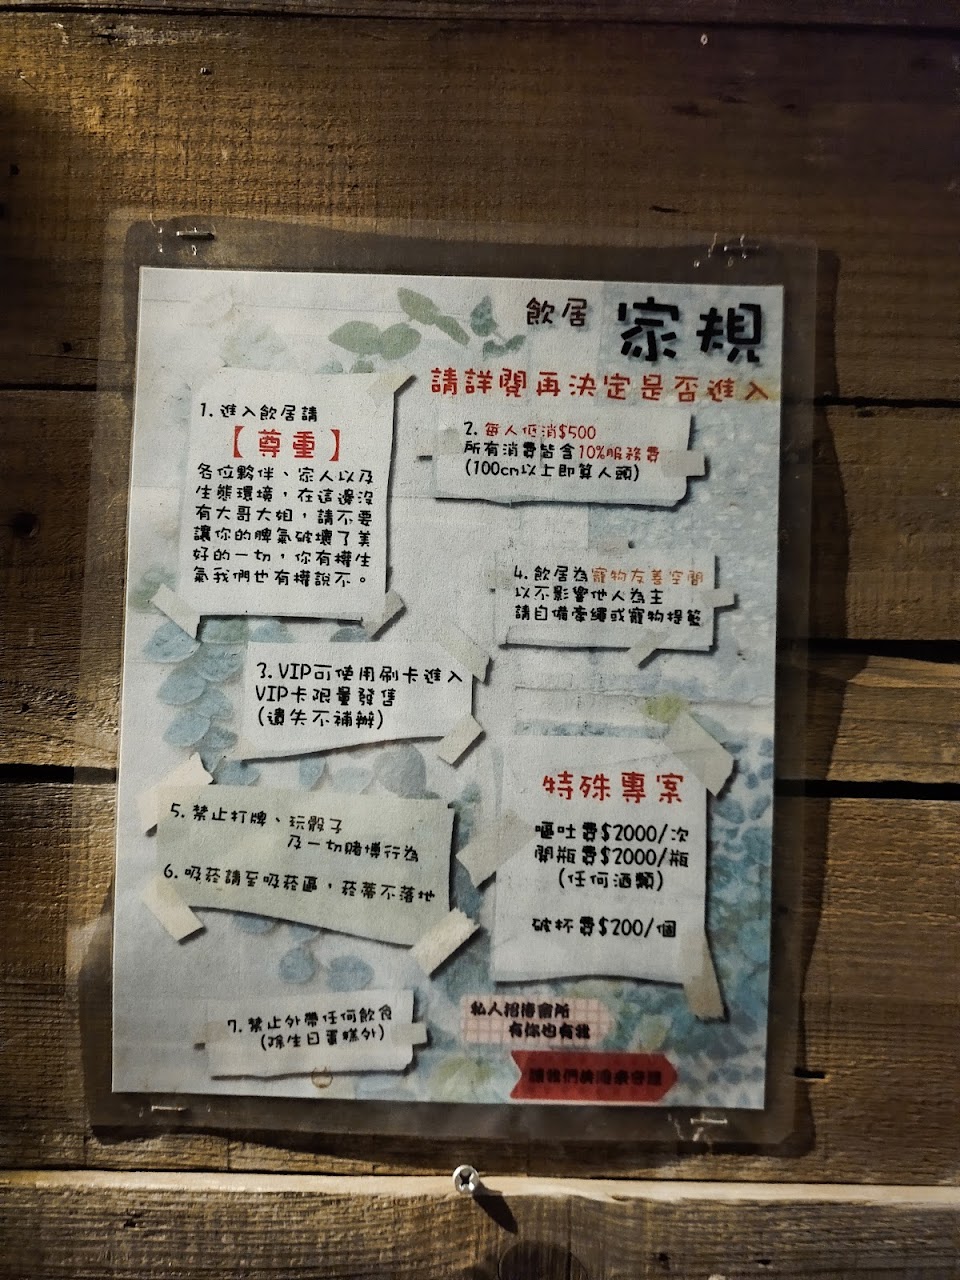 飲居 家規
請詳閱再決定是否進入
1. 進入飲居請
【尊重】
各位夥伴、家人以及
生態環境，在這邊沒
有大哥大姐，請不要
讓你的脾氣破壞了美
好的一切，你有權生
氣我們也有權說不。
2. 每人低消$500
所有消費皆含10%服務費
(100cm以上即算人頭)
3. VIP可使用刷卡進入
VIP卡限量發售
(遺失不補辦)
4. 飲居為寵物友善空間
以不影響他人為主
請自備牽繩或寵物提籃
5. 禁止打牌、玩骰子
及一切賭博行為
6. 吸菸請至吸菸區，菸蒂不落地
7. 禁止外帶任何飲食
(除生日蛋糕外)
特殊專案
嘔吐費$2000/次
開瓶費$2000/瓶
(任何酒類)
破杯費$200/個
私人招待會所
有你也有我
讓我們